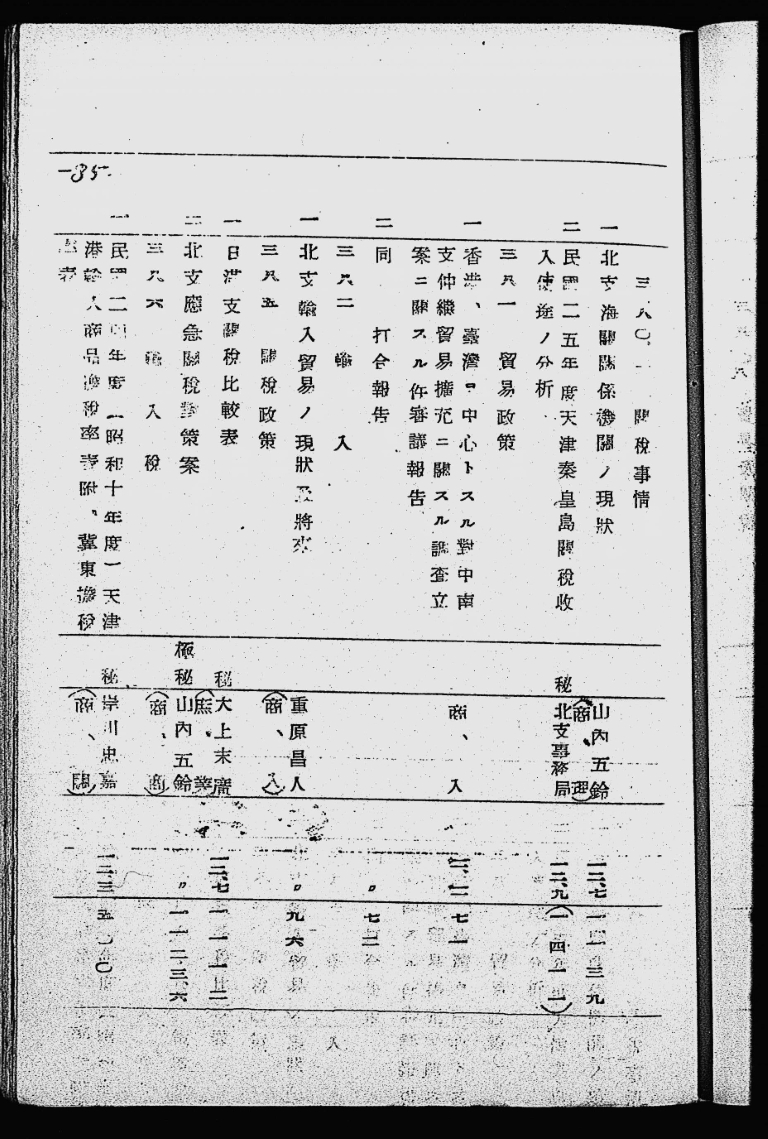 -35-
三八〇.一 關稅事情
一 北支海關關係機關ノ現狀 山內五鈴(商、理) 一二、七 一一三九
二 民國二五年度天津秦皇島關稅收
入使途ノ分析 秘 北支事務局 一二、九 (一四一一)
三八一 貿易政策
一 香港、臺灣ヲ中心トスル對中南
支仲繼貿易擴充ニ關スル調査立
案ニ關スル件審議報告 商、入 七一
二 同 打合報告 〃 七二
三八二 輸入
一 北支輸入貿易ノ現狀及將來 重原昌人(商、入) 〃 九六
三八五 關稅政策
一 日滿支關稅比較表 秘 大上末廣 一二、七 一一一二
二 北支應急關稅對策案 極秘 山內五鈴(商、商) 〃 一一二三六
三八六 輸入稅
一 民國二四年度(昭和十年度)天津
港輸入商品擔稅率表附、冀東擔稅
率表 秘 (商、關)